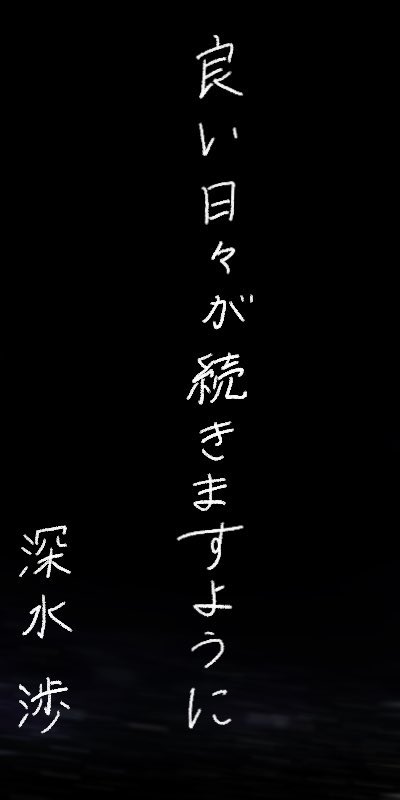 良い日々が続きますように
深水渉